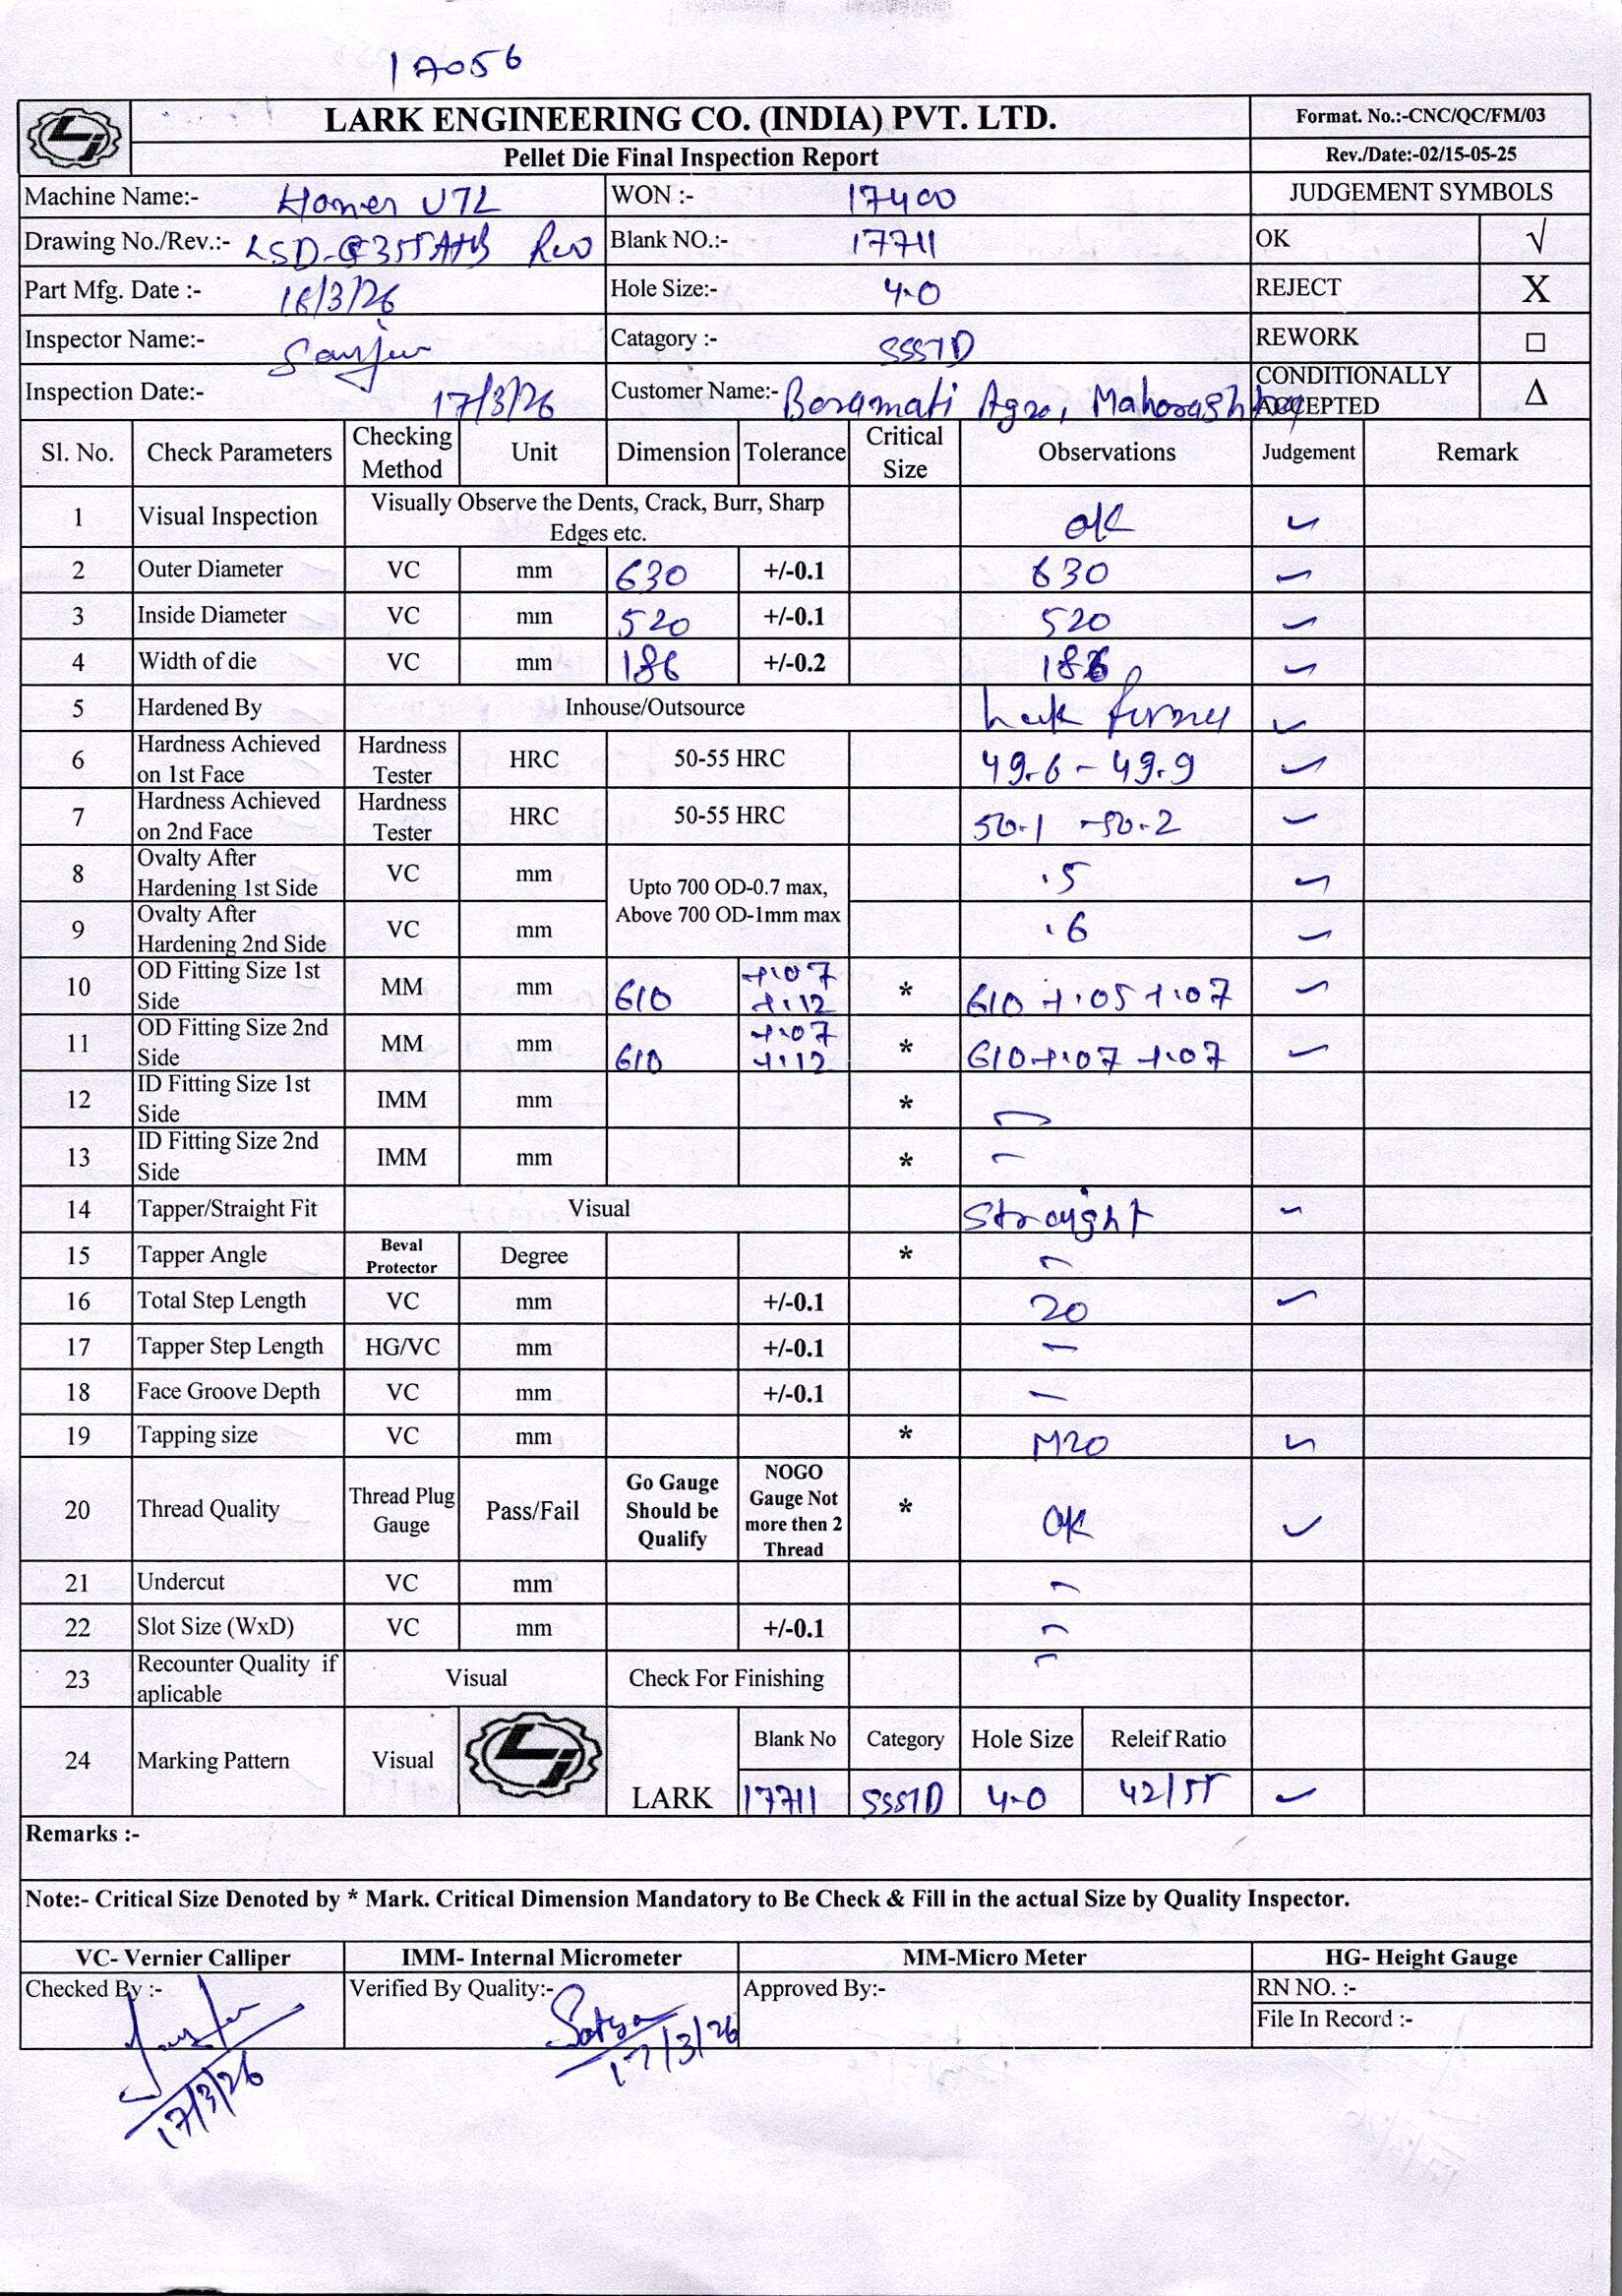 17056
LARK ENGINEERING CO. (INDIA) PVT. LTD.
Format. No.:-CNC/QC/FM/03
Pellet Die Final Inspection Report
Rev./Date:-02/15-05-25
Machine Name:- WON :- 17400 JUDGEMENT SYMBOLS
Drawing No./Rev.:- Blank NO.:- 17711 OK √
Part Mfg. Date :- 16/3/26 Hole Size:- 4.0 REJECT X
Inspector Name:- Catagory :- SSSTD REWORK □
Inspection Date:- 17/3/26 Customer Name:- Baramati Agro, Maharashtra CONDITIONALLY ACCEPTED Δ
Sl. No. Check Parameters Checking Method Unit Dimension Tolerance Critical Size Observations Judgement Remark
1 Visual Inspection Visually Observe the Dents, Crack, Burr, Sharp Edges etc. OK ✓
2 Outer Diameter VC mm 630 +/-0.1 630 ✓
3 Inside Diameter VC mm 520 +/-0.1 520 ✓
4 Width of die VC mm 186 +/-0.2 186 ✓
5 Hardened By Inhouse/Outsource ✓
6 Hardness Achieved on 1st Face Hardness Tester HRC 50-55 HRC 49.6 - 49.9 ✓
7 Hardness Achieved on 2nd Face Hardness Tester HRC 50-55 HRC 50.1 - 50.2 ✓
8 Ovalty After Hardening 1st Side VC mm Upto 700 OD-0.7 max, Above 700 OD-1mm max .5 ✓
9 Ovalty After Hardening 2nd Side VC mm .6 ✓
10 OD Fitting Size 1st Side MM mm 610 +.07 +.12 * 610 +.05 +.07 ✓
11 OD Fitting Size 2nd Side MM mm 610 +.07 +.12 * 610 +.07 +.07 ✓
12 ID Fitting Size 1st Side IMM mm * -
13 ID Fitting Size 2nd Side IMM mm * -
14 Tapper/Straight Fit Visual Straight ✓
15 Tapper Angle Beval Protector Degree * -
16 Total Step Length VC mm +/-0.1 20 ✓
17 Tapper Step Length HG/VC mm +/-0.1 -
18 Face Groove Depth VC mm +/-0.1 -
19 Tapping size VC mm * M20 ✓
20 Thread Quality Thread Plug Gauge Pass/Fail Go Gauge Should be Qualify NOGO Gauge Not more then 2 Thread * OK ✓
21 Undercut VC mm -
22 Slot Size (WxD) VC mm +/-0.1 -
23 Recounter Quality if aplicable Visual Check For Finishing -
24 Marking Pattern Visual LARK Blank No Category Hole Size Releif Ratio
17711 SSSTD 4.0 42/55 ✓
Remarks :-
Note:- Critical Size Denoted by * Mark. Critical Dimension Mandatory to Be Check & Fill in the actual Size by Quality Inspector.
VC- Vernier Calliper IMM- Internal Micrometer MM-Micro Meter HG- Height Gauge
Checked By :- Verified By Quality:- Approved By:- RN NO. :-
File In Record :-
17/3/26 17/3/26